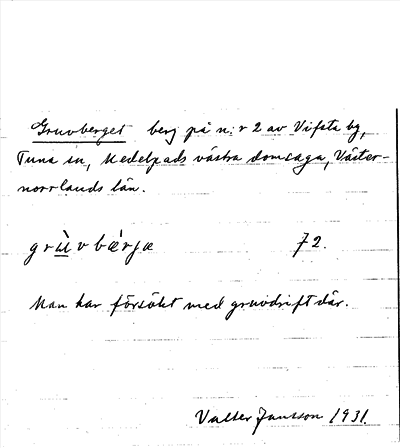 Gruvberget berg på n:r 2 av Vifsta by,
Tuna sn, Medelpads västra domsaga, Väster-
norrlands län.
grùvbærjæ 72.
Man har försökt med gruvdrift där.
Valter Jansson 1931.